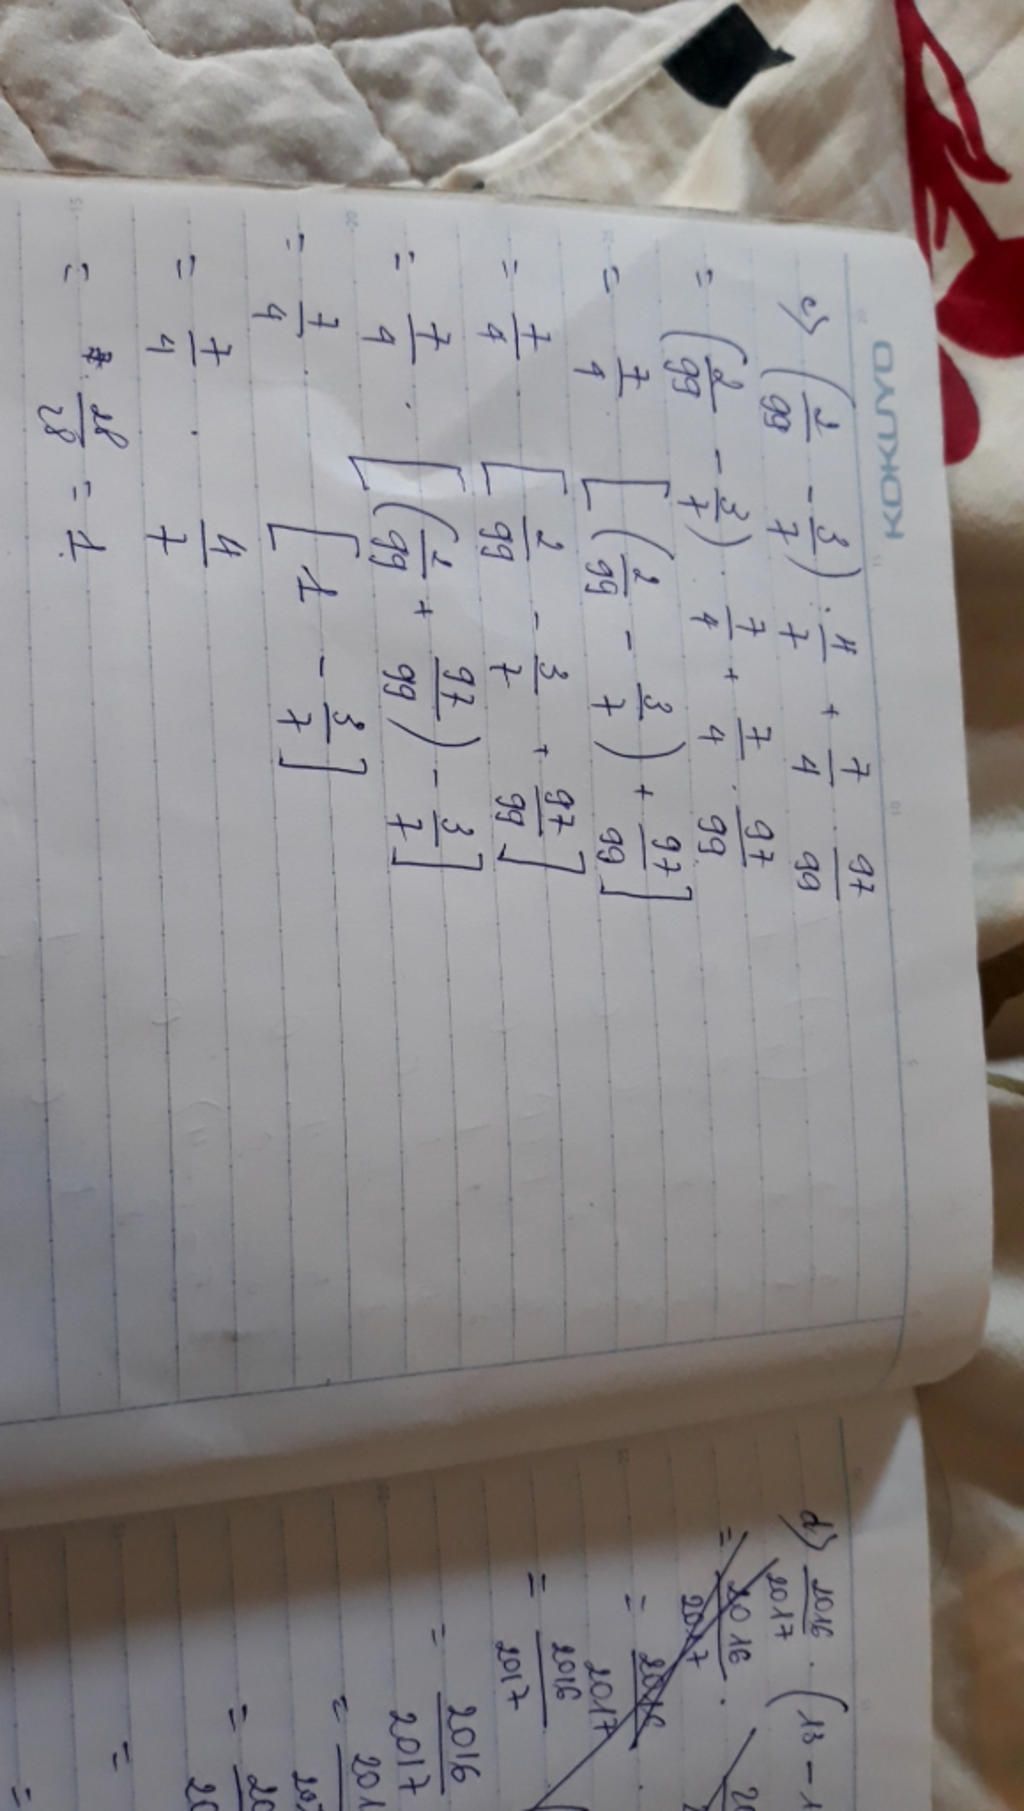 KOKUYO
c) (2/99 - 3/7) : 4/7 + 7/4 . 97/99
= (2/99 - 3/7) . 7/4 + 7/4 . 97/99
= 7/4 [(2/99 - 3/7) + 97/99]
= 7/4 [2/99 - 3/7 + 97/99]
= 7/4 . [(2/99 + 97/99) - 3/7]
= 7/4 . [1 - 3/7]
= 7/4 . 4/7
= 28/28 = 1
d) 2016/2017 . (13 - 1
= 2016/2017 .
= 2016/2017 .
= 2016/2017
= 2016/2017
= 201
= 20/20
=
=